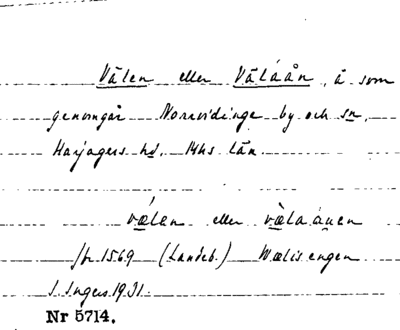 Välen eller Välaån, å som
genomgår Norrvidinge by och sn,
Harjagers hd, Mhs län
vǽlen eller vǽlaáuen
fr. 1569 (Landeb.) Wælis engen
S. Ingers 1931.
Nr 5714.